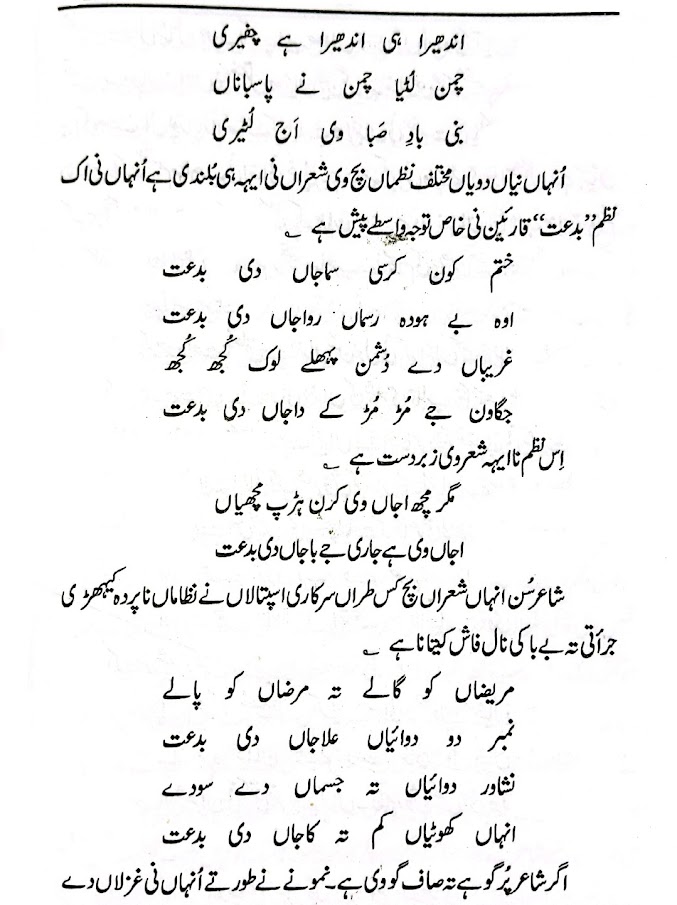 اندھیرا ہی اندھیرا ہے چفیری
چمن لُٹیا چمن نے پاسباناں
بنی بادِ صَبا وی اَج لُٹیری
اُنہاں نیاں دویاں مختلف نظماں بچ وی شعراں نی ایہہ ہی بُلندی ہے اُنہاں نی اک
نظم ”بدعت“ قارئین نی خاص توجہ واسطے پیش ہے ؎
ختم کون کرسی سماجاں دی بدعت
اوہ بے ہودہ رسماں رواجاں دی بدعت
غریباں دے دُشمن پہلے لوک کُجھ کُجھ
جگاون جے مُڑ مُڑ کے داجاں دی بدعت
اِس نظم نا ایہہ شعر وی زبردست ہے ؎
مگر مچھ اجاں وی کرن ہڑپ مچھیاں
اجاں وی ہے جاری جے باجاں دی بدعت
شاعر سُن انہاں شعراں بچ کس طراں سرکاری اسپتالاں نے نظاماں نا پردہ کیہھڑی
جرأتی تہ بے باکی نال فاش کیتا نا ہے ؎
مریضاں کو گالے تہ مرضاں کو پالے
نمبر دو دوائیاں علاجاں دی بدعت
نشاور دوائیاں تہ جسماں دے سودے
انہاں کھوٹیاں کم تہ کاجاں دی بدعت
اگر شاعر پُر گو ہے تہ صاف گو وی ہے۔ نمونے نے طور تے اُنہاں نی غزلاں دے